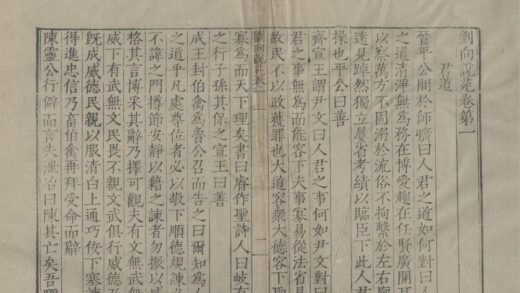 劉向說苑卷第一
君道
晉平公問於師曠曰人君之道如何對曰
之道清淨無為務在博愛趨在任賢廣開
以察萬方不固溺於流俗不拘繫於左右廓
遠見踔然獨立屢省考績以臨臣下此人君
操也平公曰善
齊宣王謂尹文曰人君之事何如尹文對曰
君之事無為而能容下夫事寡易從法省易
故民不以政獲罪也大道容衆大德容下聖
寡為而天下理矣書曰睿作聖詩人曰岐有
之行子孫其保之宣王曰善
成王封伯禽為魯公召而告之曰爾知為人
之道乎凡處尊位者必以敬下順德規諫必
不諱之門撙節安靜以藉之諫者勿振以威
格其言博采其辭乃擇可觀夫有文無武無
威下有武無文民畏不親文武俱行威德乃
既成威德民親以服清白上通巧佞下塞諫
得進忠信乃畜伯禽再拜受命而辭
陳靈公行僻而言失泄冶曰陳其亡矣吾驟